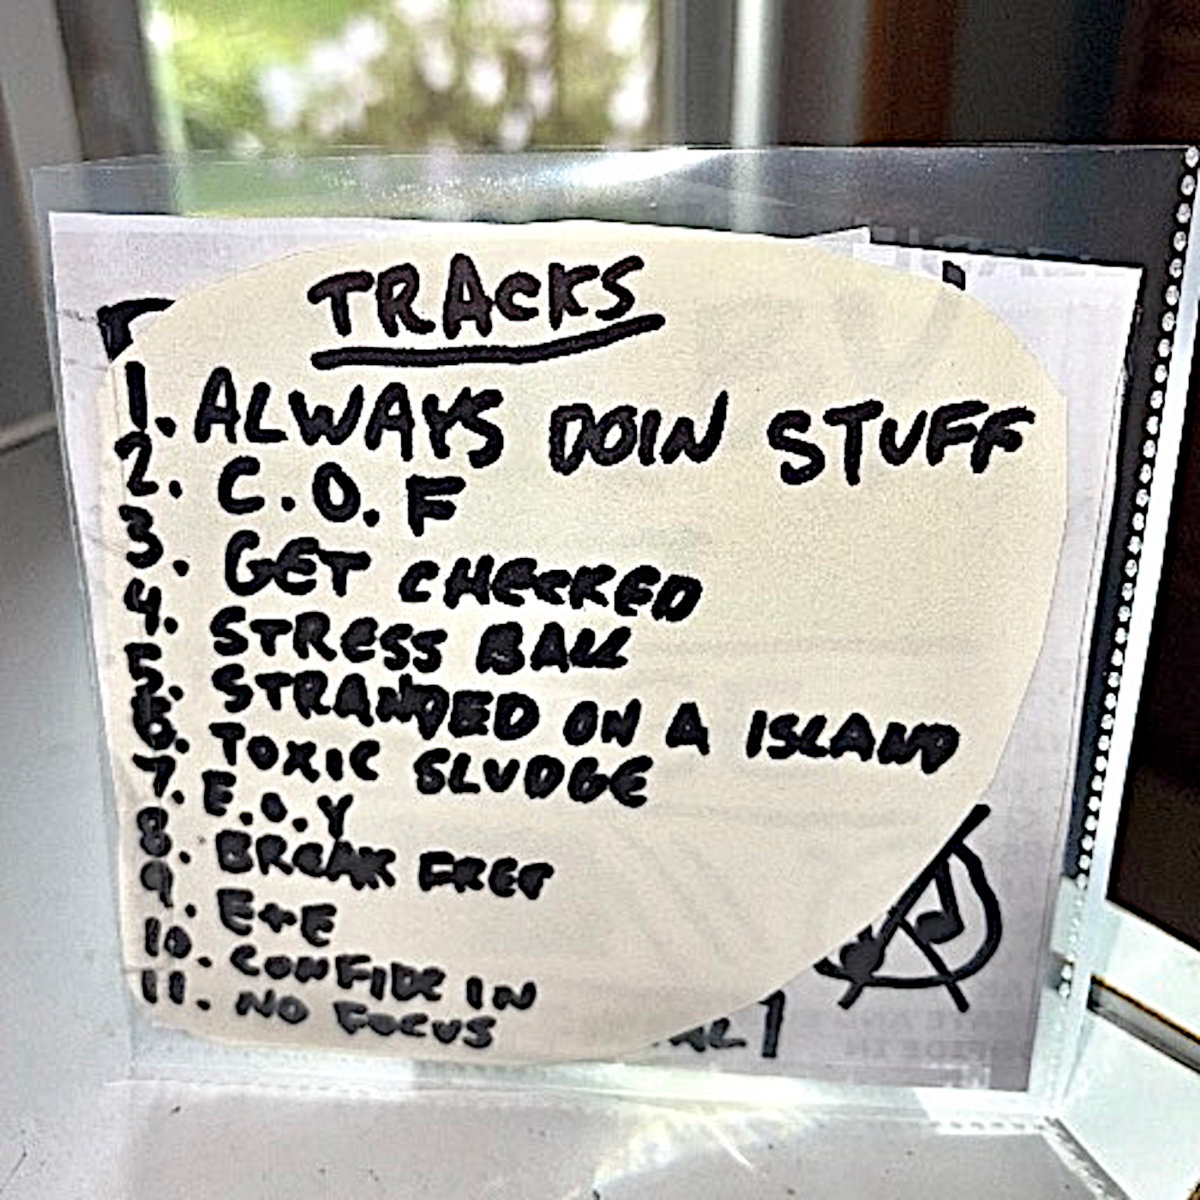 TRACKS
1. ALWAYS DOIN STUFF
2. C.O.F
3. GET CHECKED
4. STRESS BALL
5. STRANDED ON A ISLAND
6. TOXIC SLUDGE
7. E.O.Y
8. BREAK FREE
9. E+E
10. CONFIDE IN
11. NO FOCUS